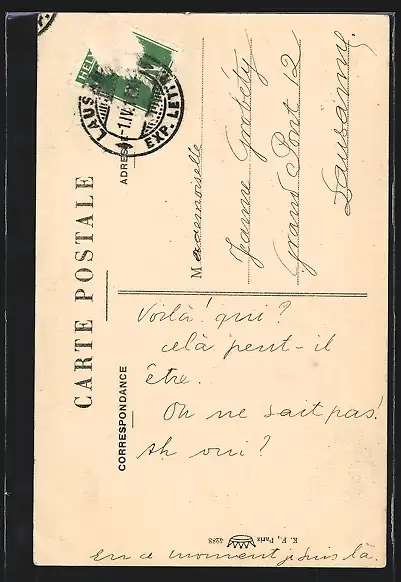 CARTE POSTALE
HELV
LAUS
-1.IV.
EXP. LETT.
ADRESSE
Mademoiselle
Jeanne Grobéty
Grand Pont 12
Lausanne.
CORRESPONDANCE
Voilà! qui?
celà peut-il
être..
On ne sait pas!
Ah oui?
K. F., Paris
4288
en ce moment je suis là.